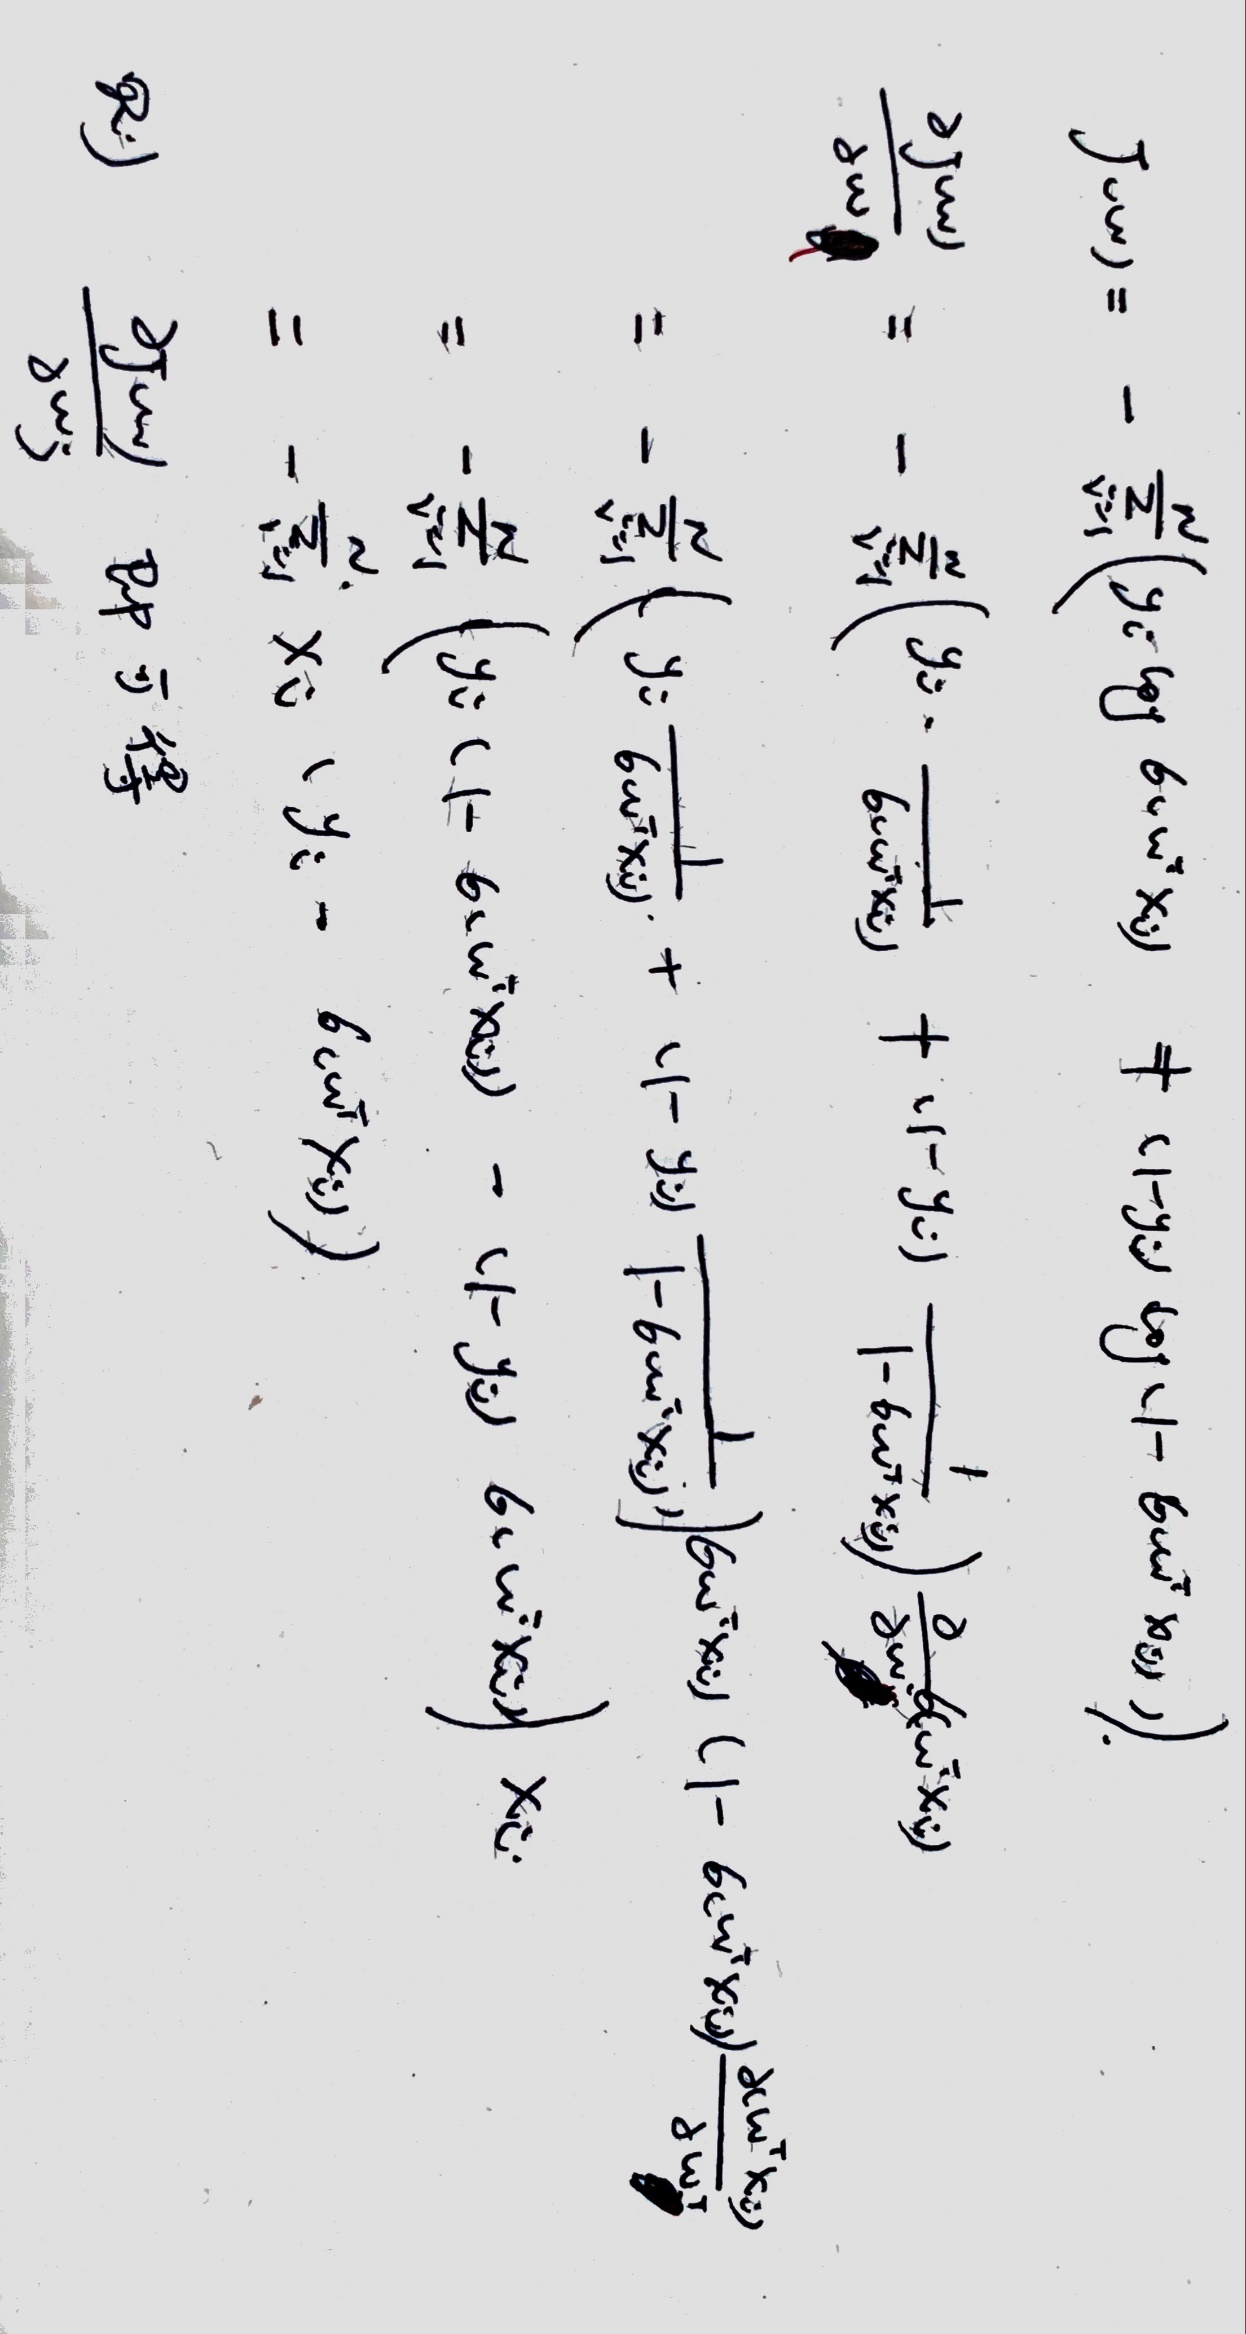 J(w) = - Σ_{i=1}^{N} ( y_i log σ(w^T x_i) + (1-y_i) log (1- σ(w^T x_i)) ).
∂J(w)/∂w = - Σ_{i=1}^{N} ( y_i · 1/σ(w^T x_i) + (1-y_i) 1/(1-σ(w^T x_i)) ) ∂/∂w σ(w^T x_i)
= - Σ_{i=1}^{N} ( y_i 1/σ(w^T x_i) + (1-y_i) 1/(1-σ(w^T x_i)) ) σ(w^T x_i) (1- σ(w^T x_i)) ∂(w^T x_i)/∂w^T
= - Σ_{i=1}^{N} ( y_i (1- σ(w^T x_i)) - (1-y_i) σ(w^T x_i) ) x_i.
= - Σ_{i=1}^{N} x_i (y_i - σ(w^T x_i))
∂J(w)/∂w_j 即可得